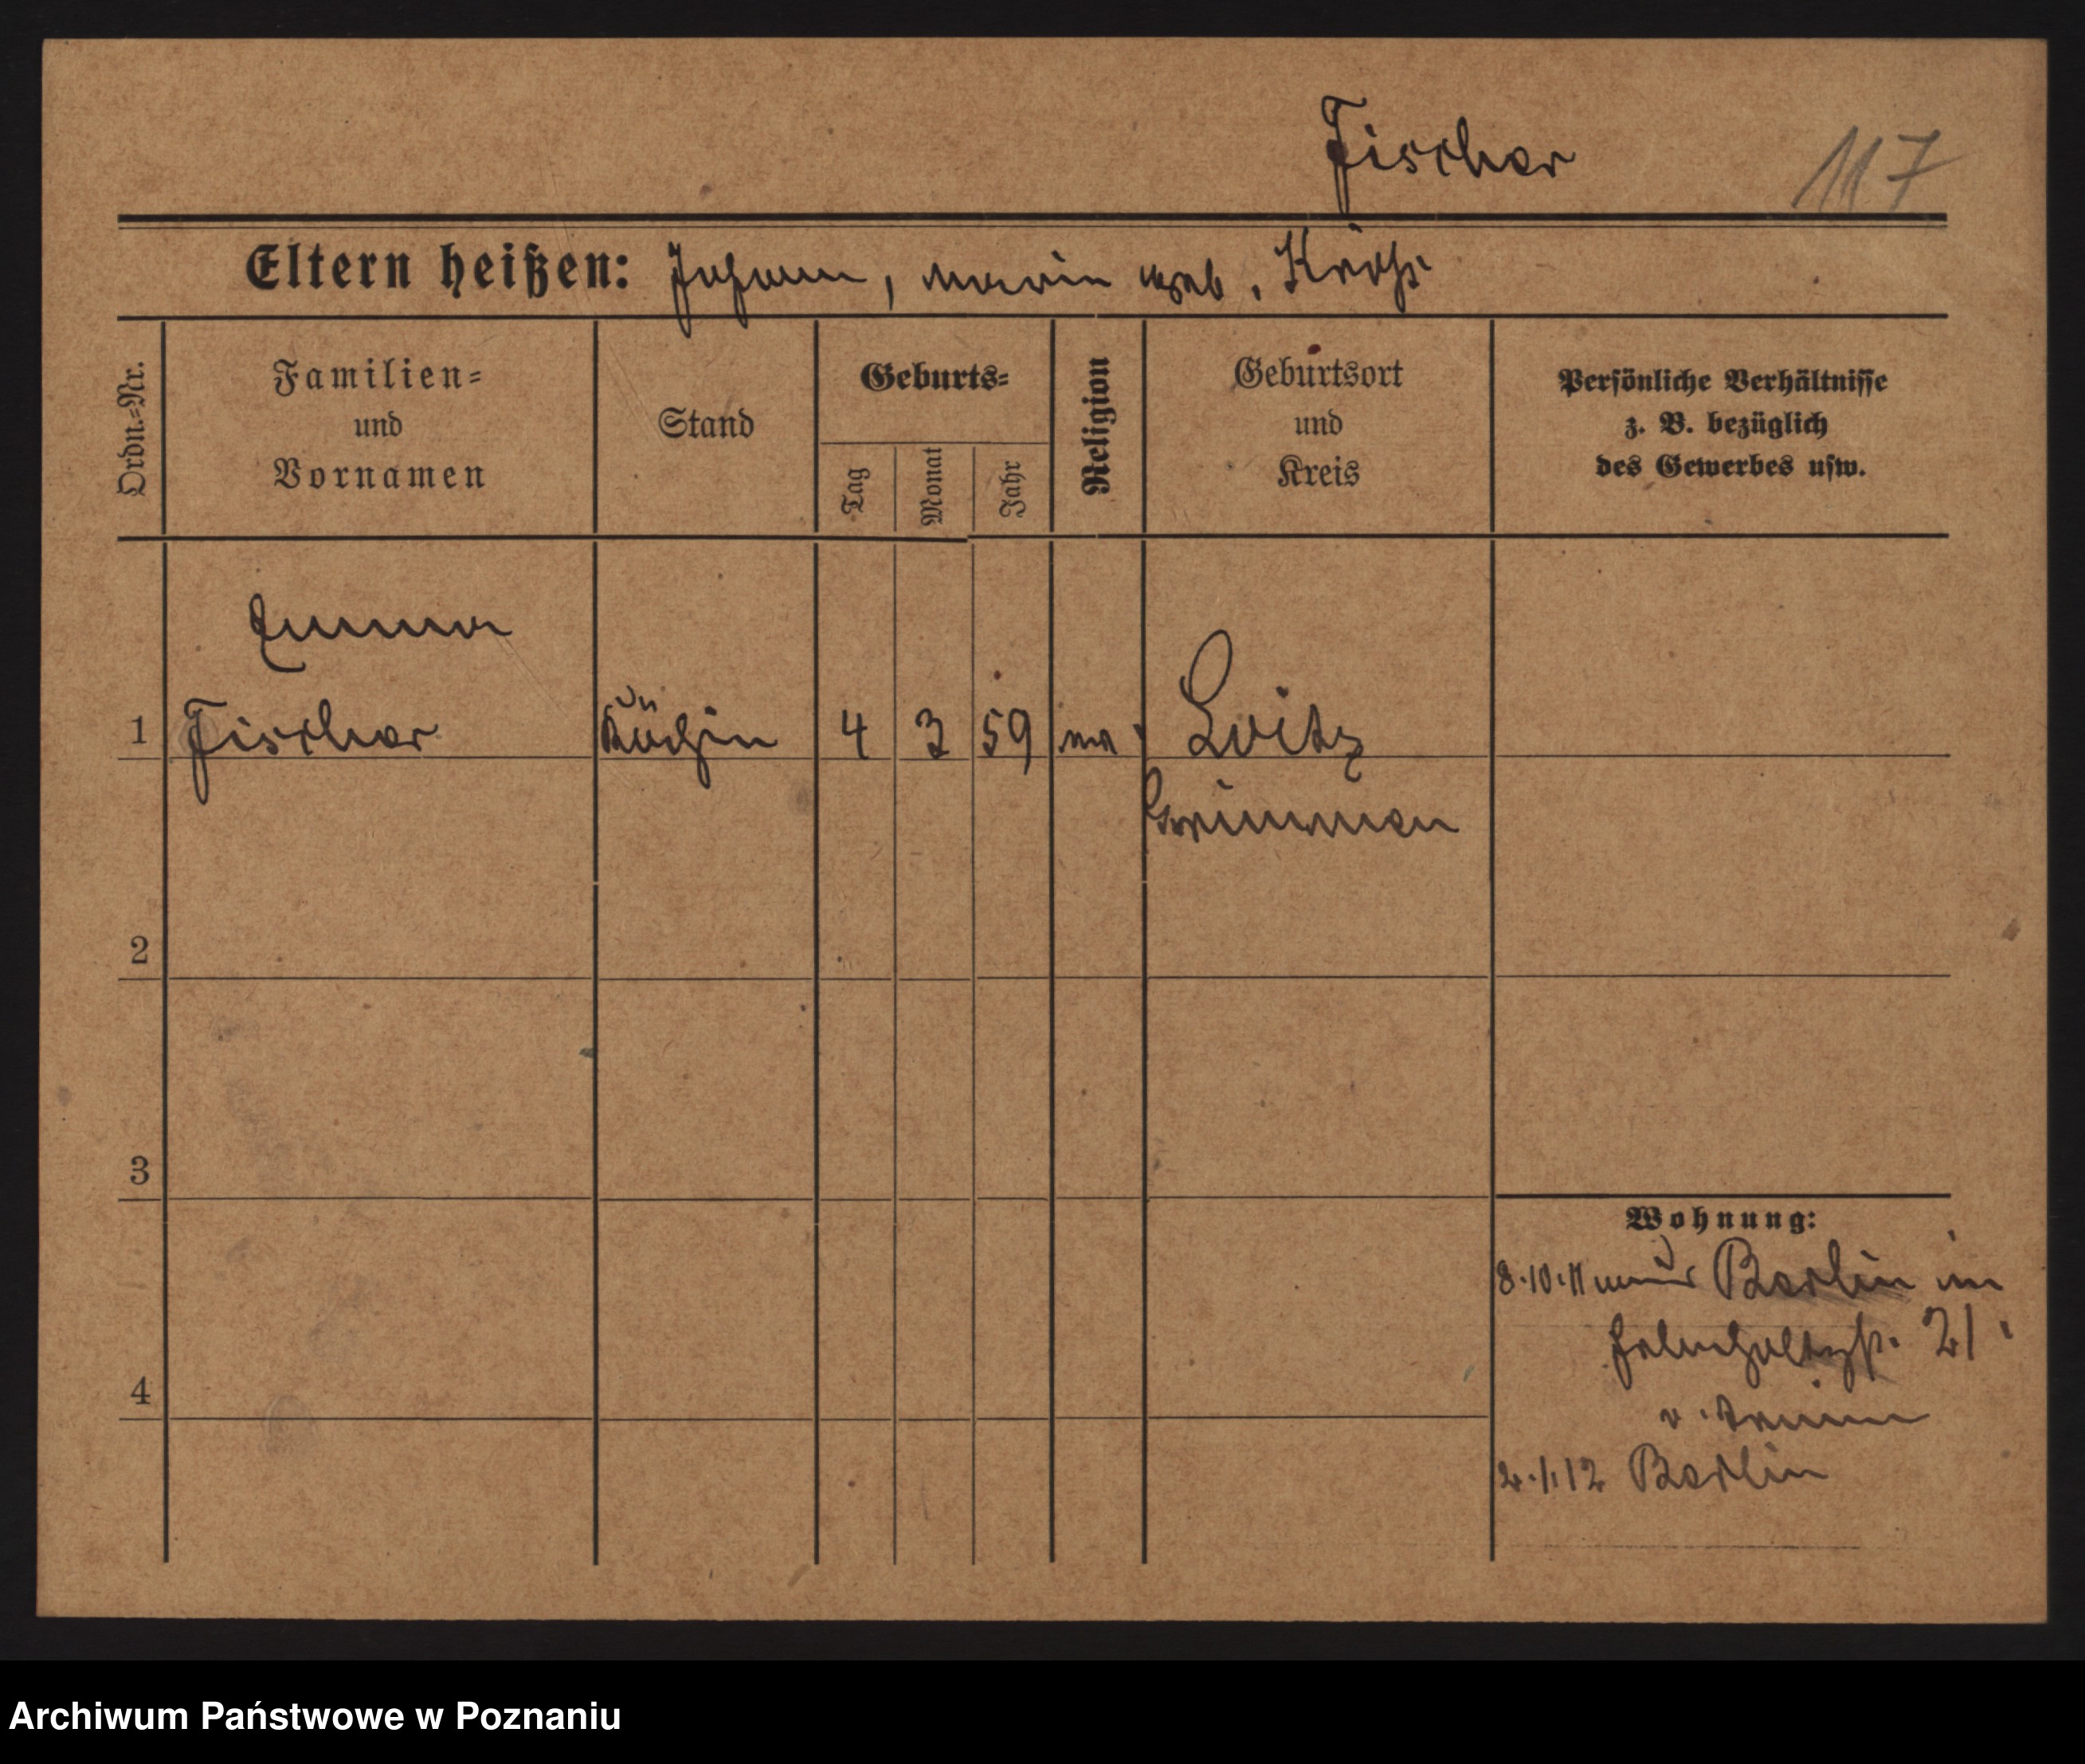 Fischer
117
Eltern heißen: Johann, Maria geb. Kröhs
Ordn.=Nr.
Familien=
und
Vornamen
Stand
Geburts=
Tag
Monat
Jahr
Religion
Geburtsort
und
Kreis
Persönliche Verhältnisse
z. B. bezüglich
des Gewerbes usw.
Emma
1 Fischer Köchin 4 3 59 Loitz
Grimmen
2
3
4
Wohnung:
8.10.11 Berlin in
21
v.
2.1.12 Berlin
Archiwum Państwowe w Poznaniu